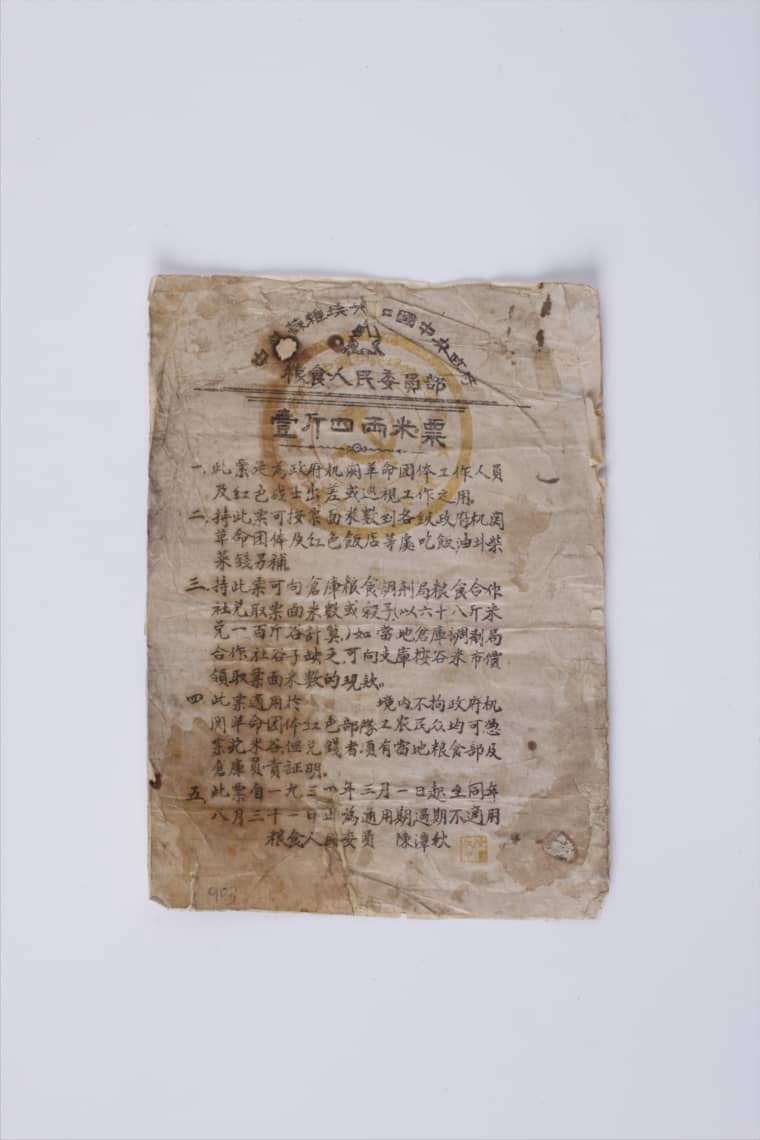 中華蘇維埃共和國中央政府
粮食人民委員部
壹斤四兩米票
一、此票是為政府机関革命团体工作人員
及红色战士出差或巡視工作之用。
二、持此票可按票面米數到各級政府机関
革命团体及红色飯店等處吃飯,油盐柴
菜錢另補
三、持此票可向倉庫粮食調剂局粮食合作
社兑取票面米數或穀子(以六十八斤米
兑一百斤谷計算)如當地倉庫調剂局
合作社谷子缺乏,可向支庫按谷米市價
領取票面米數的現款。
四、此票適用於 境内不拘政府机
関革命团体红色部隊工农民众均可憑
票兑米谷但兑錢者須有當地粮食部及
倉庫員責証明。
五、此票自一九三四年三月一日起至同年
八月三十一日止為通用期過期不適用
粮食人民委員 陳潭秋